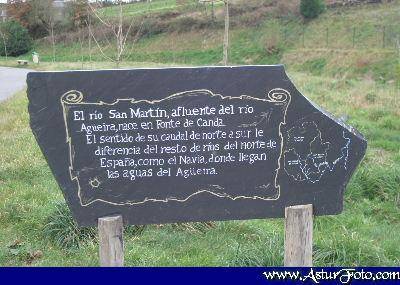 El río San Martín, afluente del río
Agüeira, nace en Fonte de Canda.
El sentido de su caudal de norte a sur le
diferencia del resto de ríos del norte de
España, como el Navia, donde llegan
las aguas del Agüeira.
www.AsturFoto.com